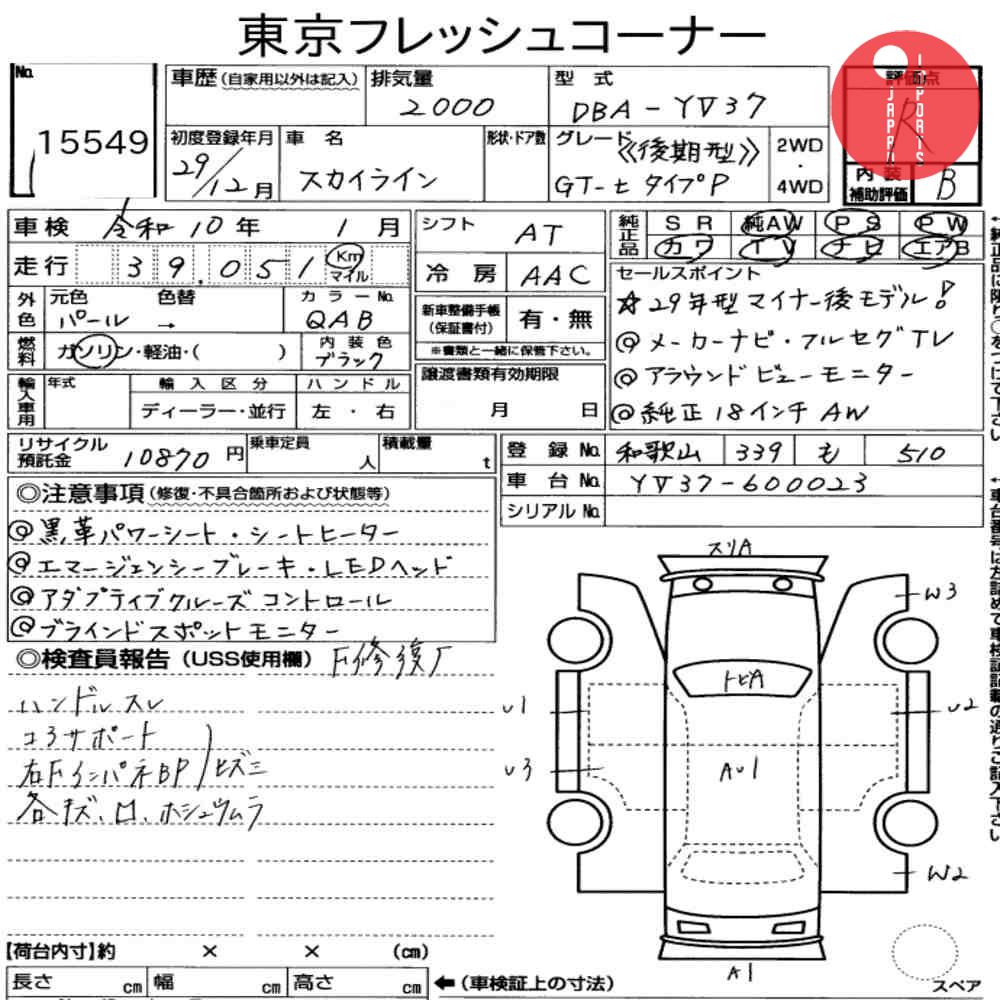 東京フレッシュコーナー
No.
15549
車歴(自家用以外は記入)
排気量
2000
型 式
DBA-YV37
評価点
R
JAPAN
IMPORTS
初度登録年月
29/12月
車 名
スカイライン
形状・ドア数
グレード
≪後期型≫
GT-t タイプP
2WD
・
4WD
内 装
補助評価
B
車検
令和10年 1月
走行
39,051
Km
マイル
シフト
AT
冷 房
AAC
純正品
SR 純AW PS PW
カワ TV ナビ エアB
外色
元色
色替
パール →
カラーNo.
QAB
新車整備手帳
(保証書付)
有・無
※書類と一緒に保管下さい。
燃料
ガソリン・軽油・( )
内 装 色
ブラック
セールスポイント
☆29年型マイナー後モデル!
◎メーカーナビ・フルセグTV
◎アラウンドビューモニター
◎純正18インチAW
輸入車用
年式
輸 入 区 分
ディーラー・並行
ハ ン ド ル
左 ・ 右
譲渡書類有効期限
月 日
リサイクル
預託金
10870円
乗車定員
人
積載量
t
登 録 No.
和歌山 339 も 510
車 台 No.
YV37-600023
シリアル No.
◎注意事項(修復・不具合箇所および状態等)
◎黒革パワーシート・シートヒーター
◎エマージェンシーブレーキ・LEDヘッド
◎アダプティブクルーズコントロール
◎ブラインドスポットモニター
◎検査員報告(USS使用欄)
F修復歴
ハンドルスレ
コアサポート
右FインパネBP
ヒズミ
各キズ、凹、ホシュウムラ
スリA
W3
トビA
U1
U2
U3
AU1
W2
A1
スペア
【荷台内寸】約 × × (cm)
長さ cm 幅 cm 高さ cm
←(車検証上の寸法)
↑純正品に限り○をつけて下さい
↑車台番号は左詰めで車検証記載の通りご記入下さい